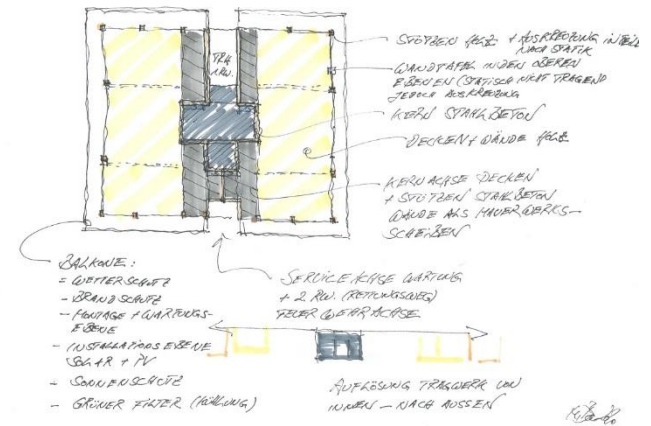 TRH
+RW.
STÜTZEN HOLZ + AUSKREUZUNG IN HOLZ
NACH STATIK
WANDTAFEL IN DEN OBEREN
EBENEN (STATISCH NICHT TRAGEND
JEDOCH AUSKREUZUNG
KERN STAHLBETON
DECKEN + WÄNDE HOLZ
KERN ACHSE DECKEN
+ STÜTZEN STAHLBETON
WÄNDE ALS MAUERWERKS-
SCHEIBEN
BALKONE:
= WETTERSCHUTZ
- BRANDSCHUTZ
- MONTAGE + WARTUNGS-
EBENE
- INSTALLATIONSEBENE
SOLAR + PV
- SONNENSCHUTZ
- GRÜNER FILTER (KÜHLUNG)
SERVICE ACHSE WARTUNG
+ 2. RW. (RETTUNGSWEG)
FEUERWEHRACHSE
AUFLÖSUNG TRAGWERK VON
INNEN – NACH AUSSEN